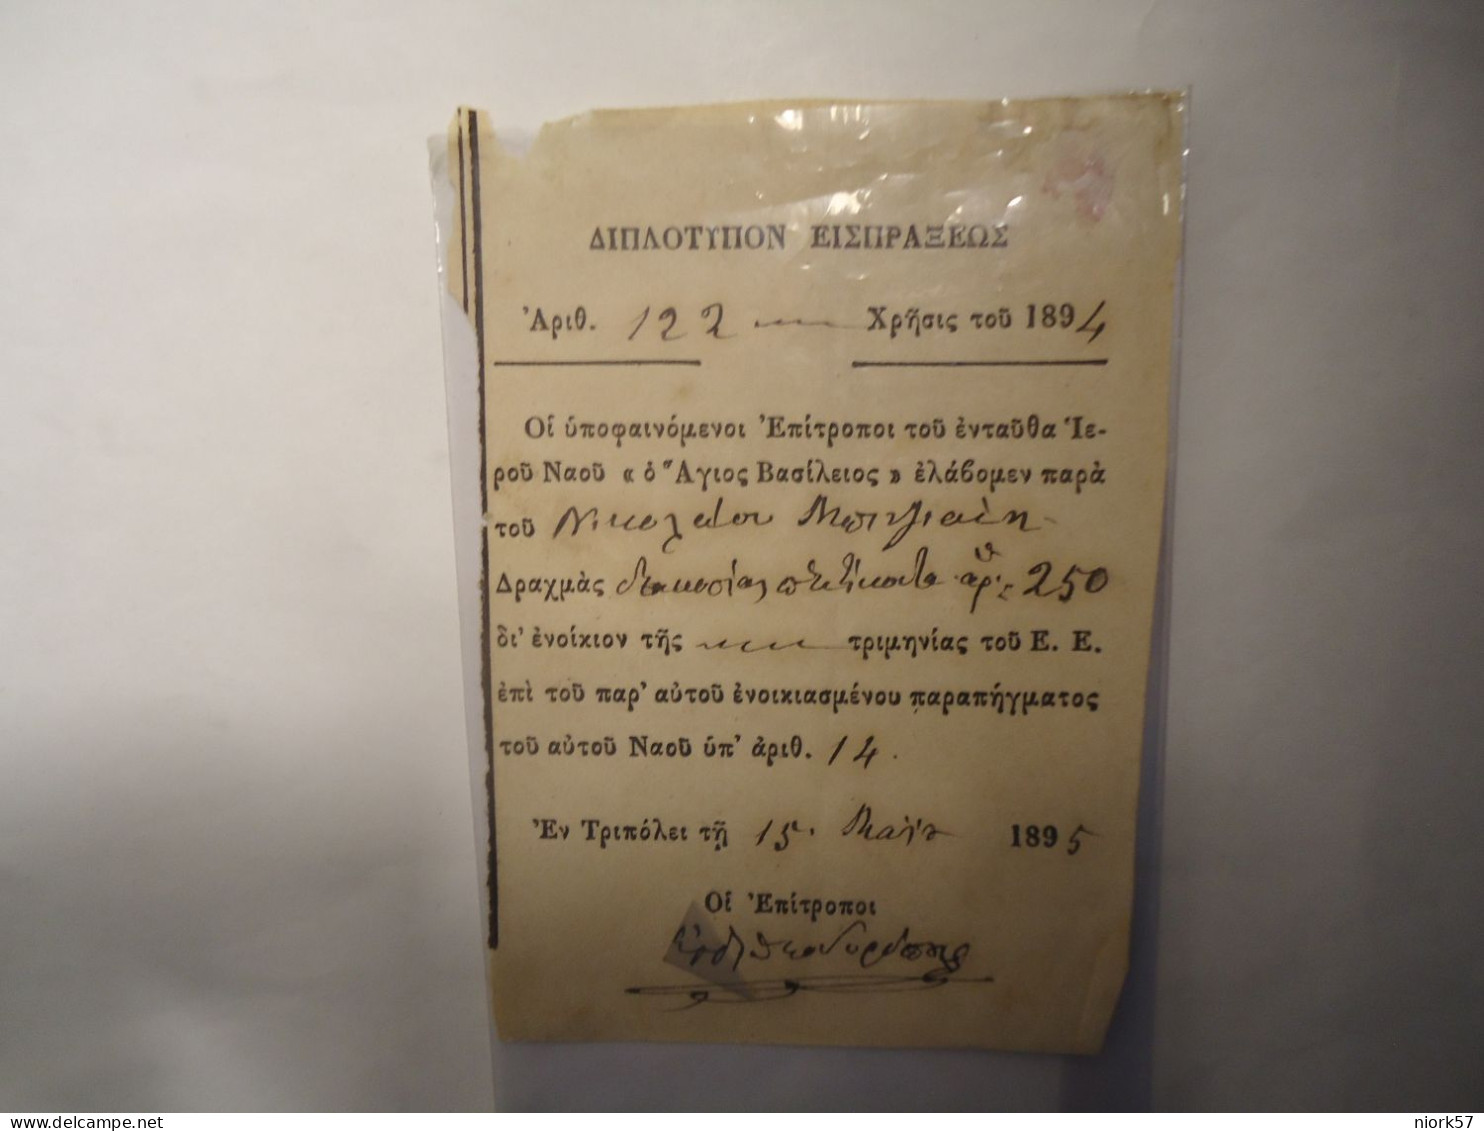 ΔΙΠΛΟΤΥΠΟΝ ΕΙΣΠΡΑΞΕΩΣ
Ἀριθ. 122 Χρῆσις τοῦ 1894
Οἱ ὑποφαινόμενοι Ἐπίτροποι τοῦ ἐνταῦθα Ἱε-
ροῦ Ναοῦ « ὁ Ἅγιος Βασίλειος » ἐλάβομεν παρὰ
τοῦ Νικολάου
Δραχμὰς διακοσίας πεντήκοντα ἀρ. 250
δι' ἐνοίκιον τῆς τριμηνίας τοῦ Ε. Ε.
ἐπὶ τοῦ παρ' αὐτοῦ ἐνοικιασμένου παραπήγματος
τοῦ αὐτοῦ Ναοῦ ὑπ' ἀριθ. 14.
Ἐν Τριπόλει τῇ 15 Μαΐου 1895
Οἱ Ἐπίτροποι
niork57